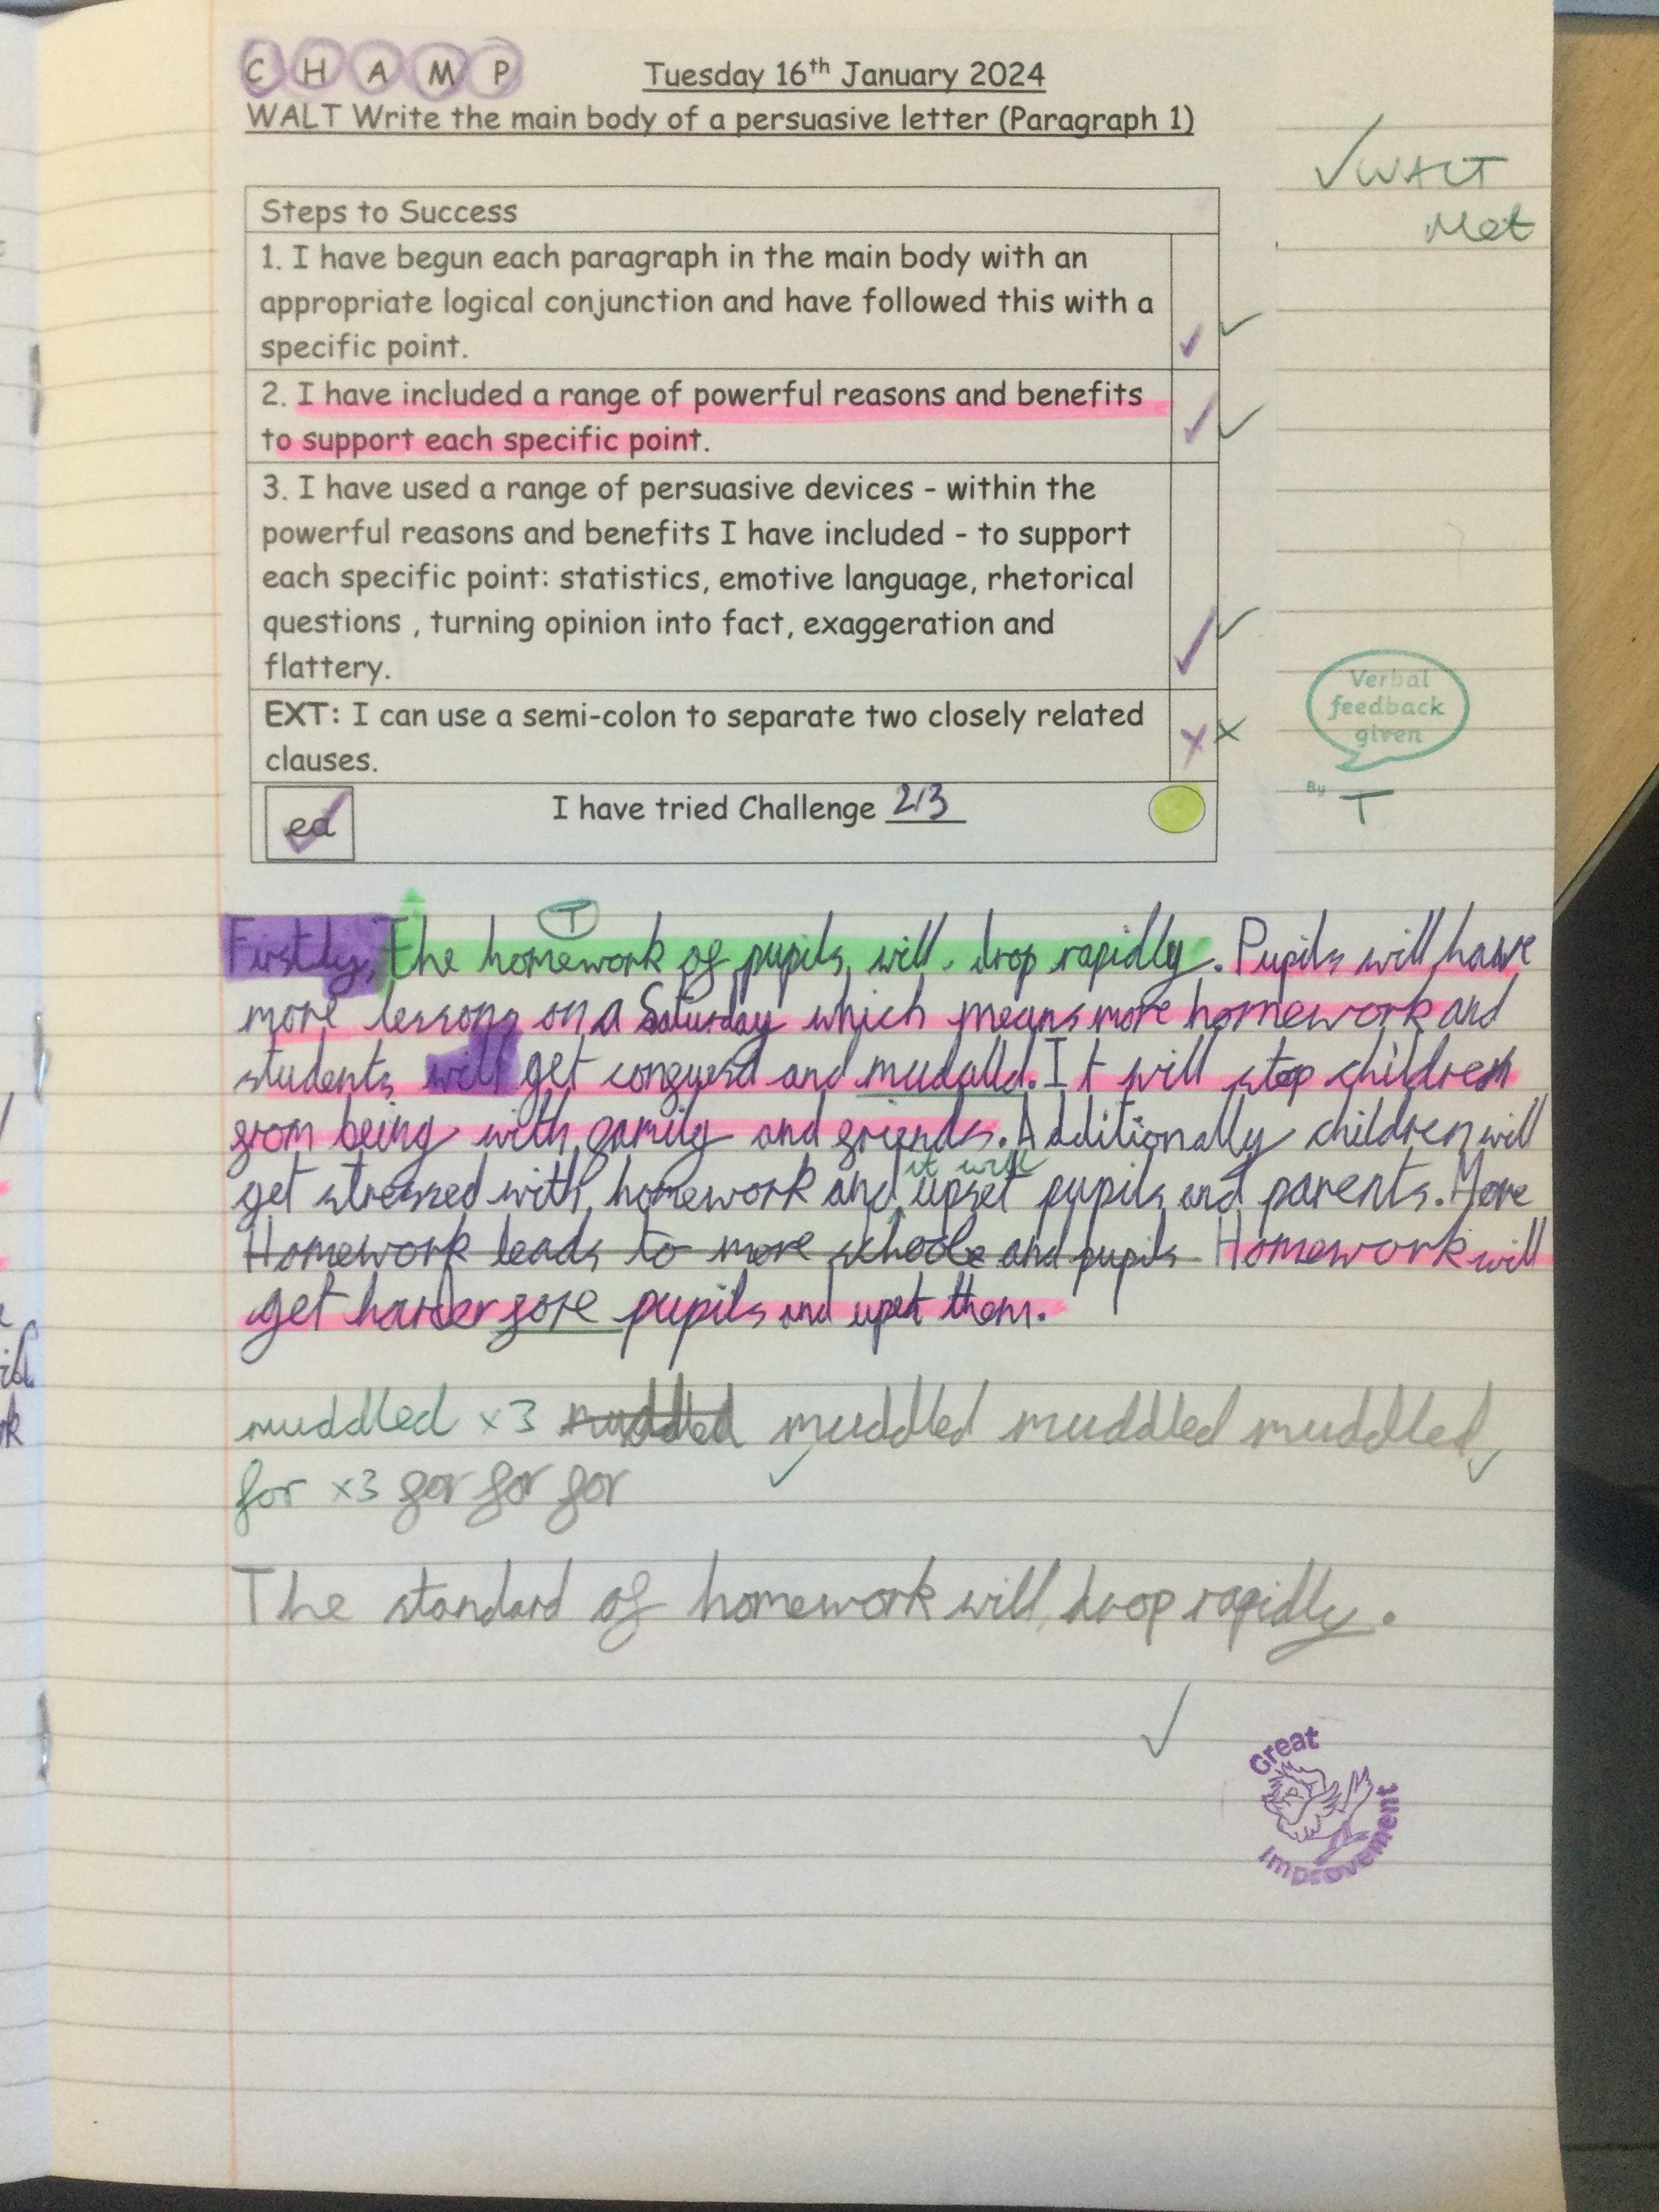 C H A M P
Tuesday 16th January 2024
WALT Write the main body of a persuasive letter (Paragraph 1)
✓ WALT
Met
Steps to Success
1. I have begun each paragraph in the main body with an
appropriate logical conjunction and have followed this with a
specific point.
2. I have included a range of powerful reasons and benefits
to support each specific point.
3. I have used a range of persuasive devices - within the
powerful reasons and benefits I have included - to support
each specific point: statistics, emotive language, rhetorical
questions , turning opinion into fact, exaggeration and
flattery.
EXT: I can use a semi-colon to separate two closely related
clauses.
Verbal
feedback
given
By T
ed I have tried Challenge 2/3
T
Firstly, the homework of pupils will drop rapidly. Pupils will have
more lessons on a Saturday which means more homework and
students will get and mudalld. It will stop children
from being with family and friends. Additionally children will
it will
get stressed with homework and upset pupils and parents. More
Homework leads to more schoole and pupils Homework will
get harder fore pupils and upset them.
muddled x3 muddled muddled muddled muddled
for x3 for for for
The standard of homework will drop rapidly.
Great
Improvement